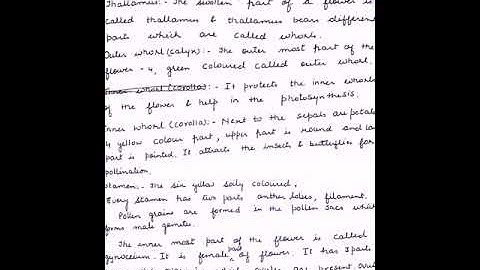 Thallamus:- The swollen part of a flower is
called thallamus & thallamus bears different
parts which are called whorls.
Outer whorl (calyx):- The outer most part of the
flower - 4, green coloured called outer whorl.
Inner whorl (corolla):- It protects the inner whorls
of the flower & help in the photosynthesis.
Inner whorl (corolla):- Next to the sepals are petals
4 yellow colour part, upper part is round and
part is pointed. It attracts the insects & butterflies for
pollination.
Stamen.- The six yellow coloured.
Every stamen has two parts anther lobes, filament.
Pollen grains are formed in the pollen sacs which
forms male gametes.
The inner most part of the flower is called
gynoecium. It is female part of flower. It has 3 parts
are present